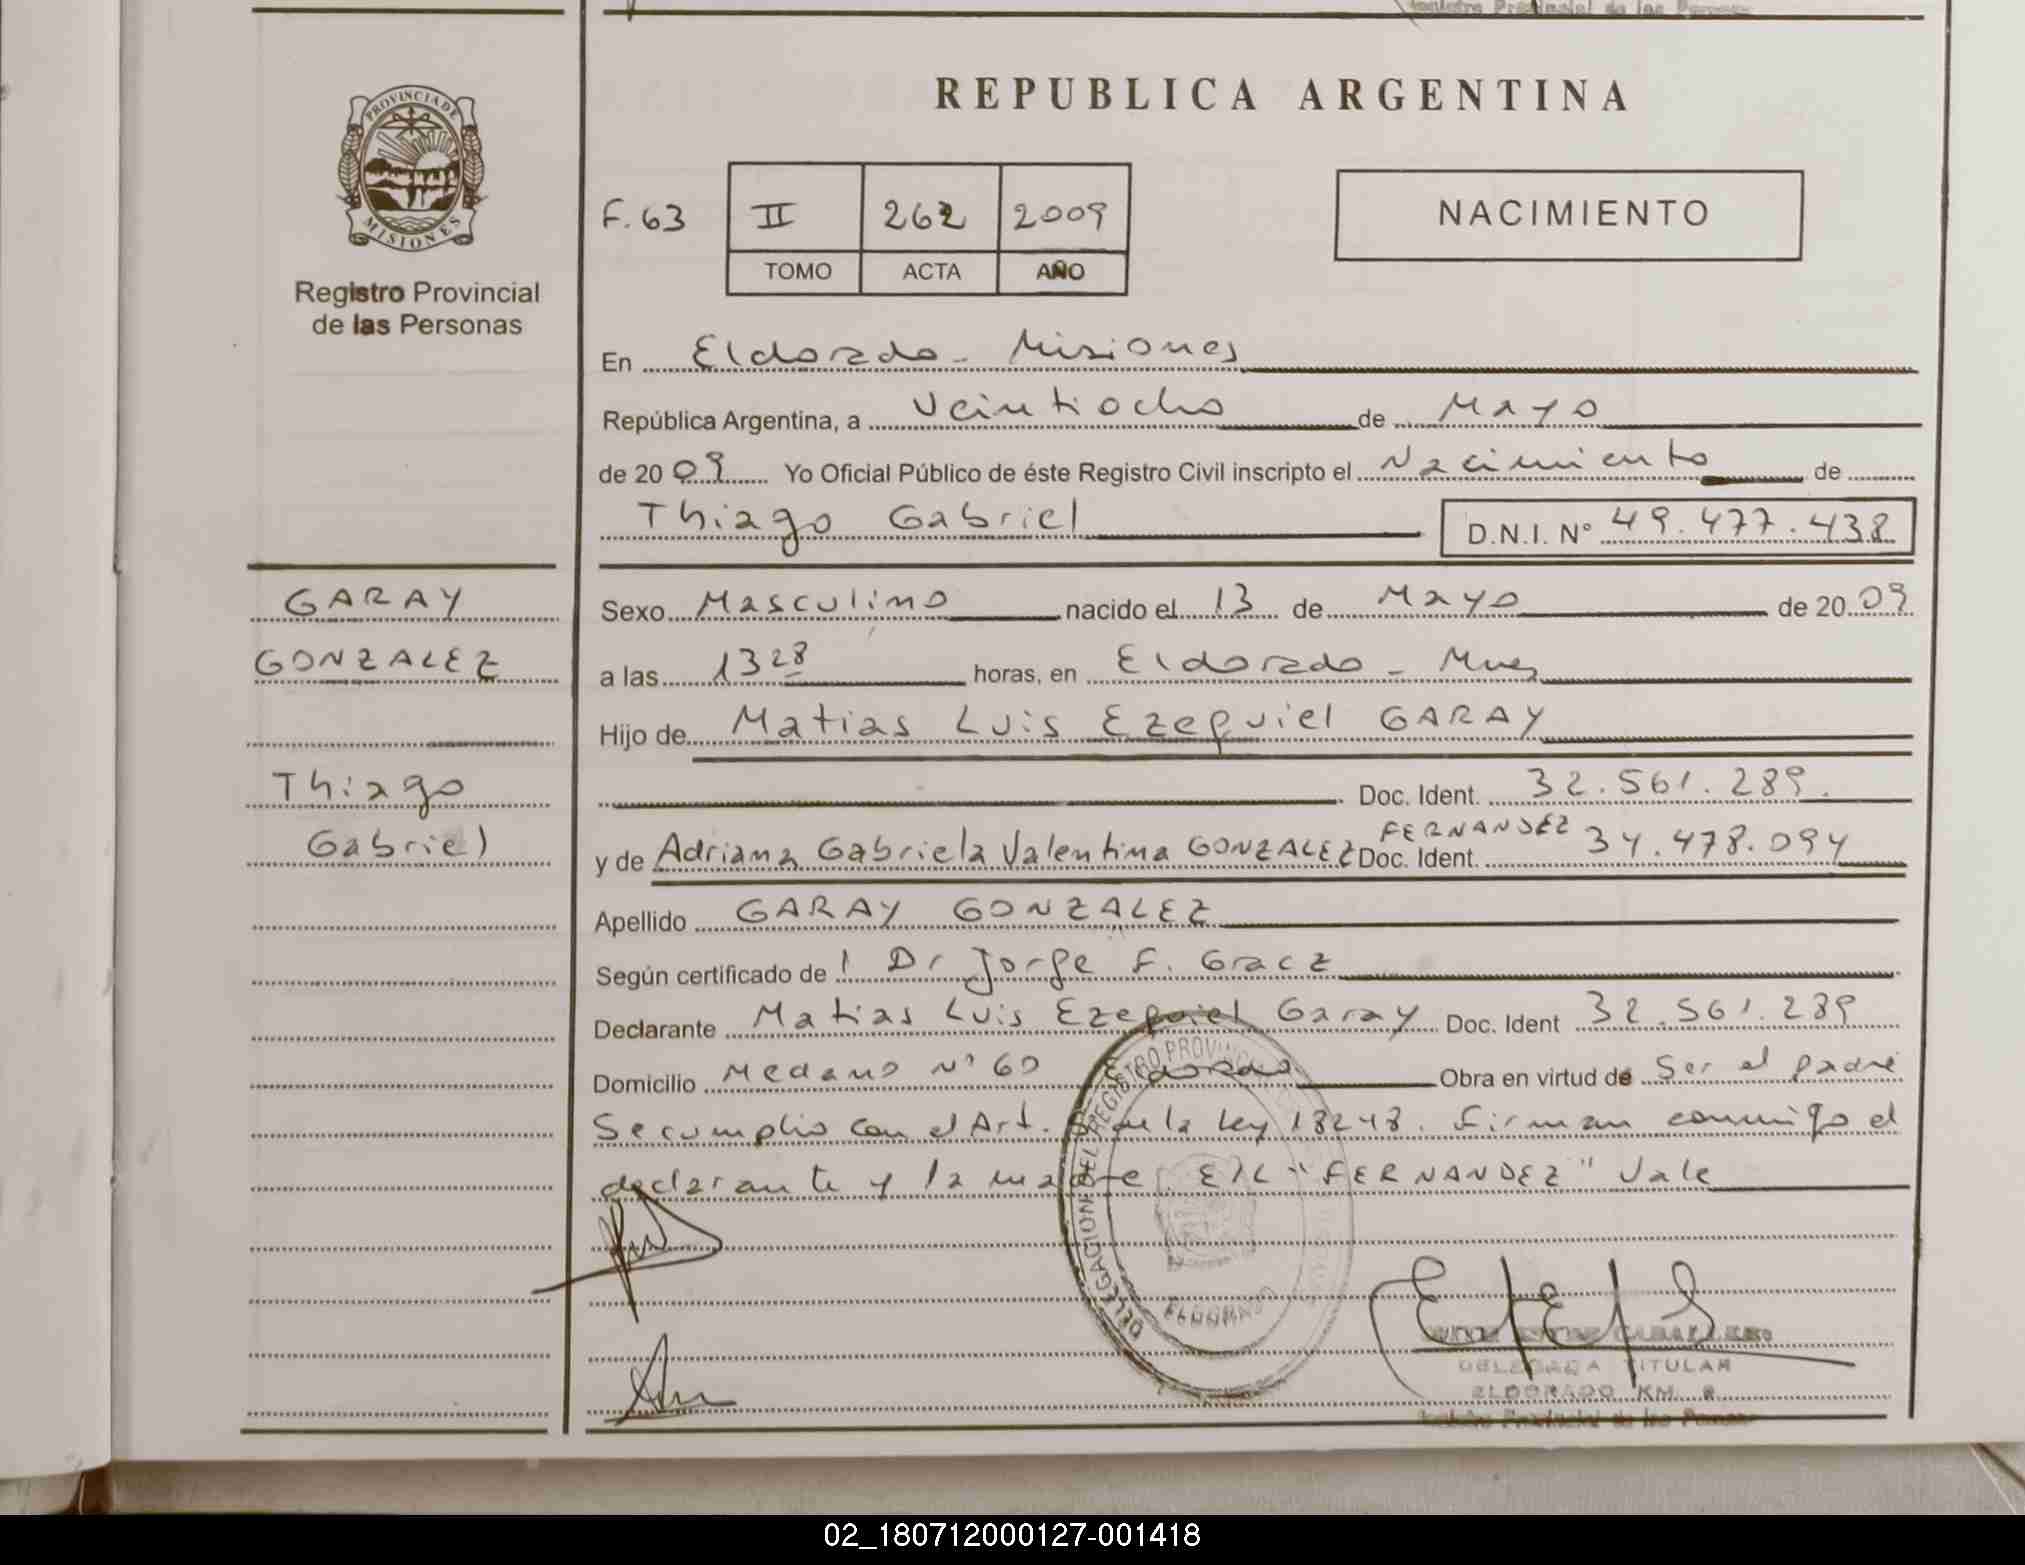 REPUBLICA ARGENTINA
PROVINCIA DE MISIONES
Registro Provincial
de las Personas
F. 63 II 262 2009
TOMO ACTA AÑO
NACIMIENTO
En Eldorado - Misiones
República Argentina, a Veintiocho de Mayo
de 20 09 Yo Oficial Público de éste Registro Civil inscripto el Nacimiento de
Thiago Gabriel D.N.I. Nº 49.477.438
GARAY
GONZALEZ
Thiago
Gabriel
Sexo Masculino nacido el 13 de Mayo de 20 09
a las 13 28 horas, en Eldorado - Mnes
Hijo de Matias Luis Ezequiel GARAY
Doc. Ident. 32.561.289.
FERNANDEZ
y de Adriana Gabriela Valentina GONZALEZ Doc. Ident. 34.478.094
Apellido GARAY GONZALEZ
Según certificado de Dr Jorge F. Gracz
Declarante Matias Luis Ezequiel Garay Doc. Ident 32.561.289
Domicilio Medano Nº 60 Eldorado Obra en virtud de Ser el padre
Se cumplio con el Art. de la Ley 18248. Firman conmigo el
declarante y la madre. E/L "FERNANDEZ" Vale
DELEGACION DEL REGISTRO PROVINCIAL
ELDORADO
CABALLERO
DELEGADA TITULAR
ELDORADO KM.
Registro Provincial de las Personas
02_180712000127-001418